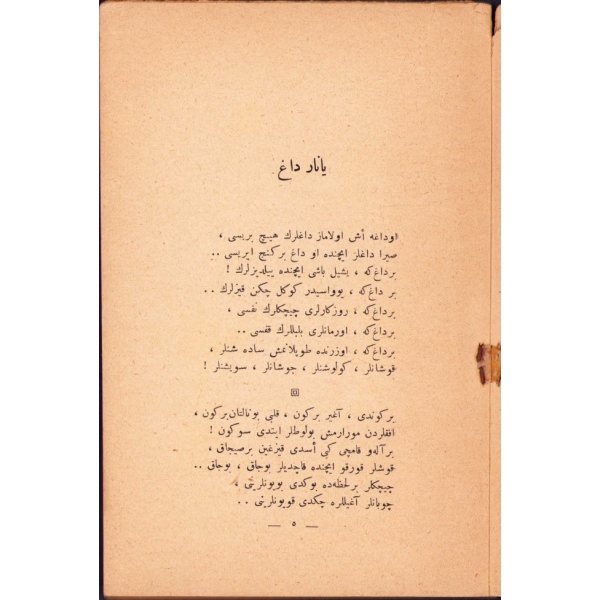 يانار داغ
اوداغه أش اولاماز داغلرك هيچ بريسى ،
صيرا داغلر ايچنده او داغ بركنج ايريسى ..
برداغ‌كه ، يشيل باشى ايچنده ييلديزلرك !
بر داغ‌كه ، يوواسيدر كوكل چكن قيزلرك ..
برداغ‌كه ، روزكارلرى چيچكلرك نفسى ،
برداغ‌كه ، اورمانلرى بلبللرك قفسى ..
برداغ‌كه ، اوزرنده طوپلانمش ساده شنلر ،
قوشانلر ، كولوشنلر ، جوشانلر ، سويشنلر !
بركوندى ، آغير بركون ، قلبى بونالتان‌بركون ،
افقلردن مورارمش بولوطلر ايندى سوكون !
برآلهو قامچى كبى أسدى قيزغين برصيجاق ،
قوشلر قورقو ايچنده قاچديلر بوجاق ، بوجاق ..
چيچكلر برلحظه‌ده بوكدى بويونلرينى ،
چوبانلر آغيللره چكدى قويونلرينى ..
— ٥ —